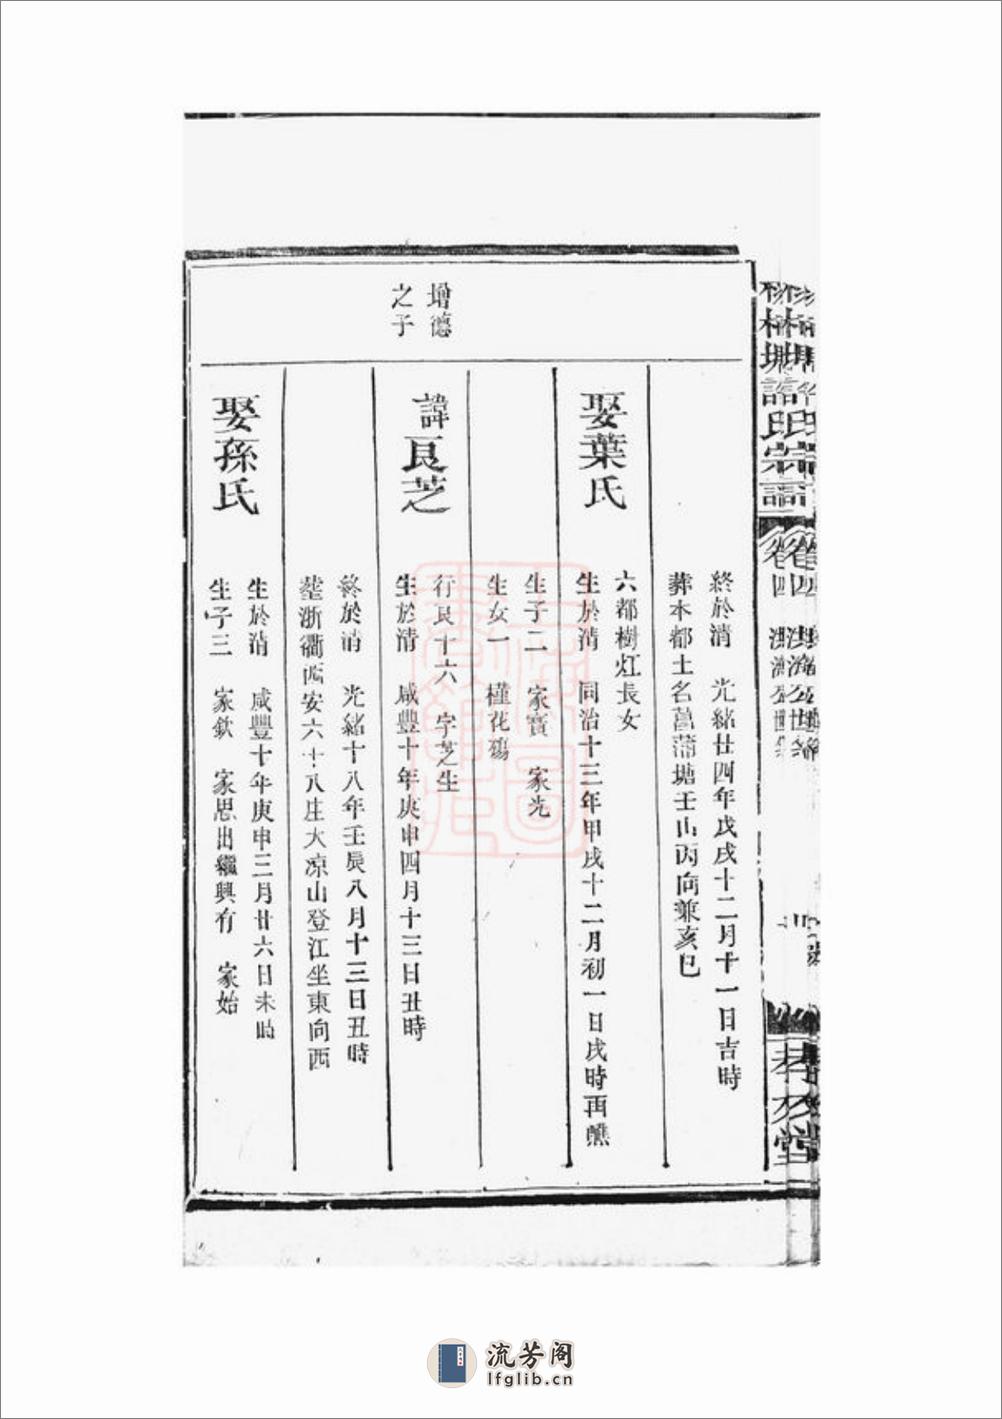 終於清　光緒廿四年戊戌十二月十一日吉時
葬本都土名菖蒲塘壬山丙向兼亥巳
娶葉氏
六都樹灯長女
生於清　同治十三年甲戌十二月初一日戌時再醮
生子二　家寶　家光
生女一　槿花殤
增德
之子
諱良芝
行良十六　字芝生
生於清　咸豐十年庚申四月十三日丑時
終於清　光緒十八年壬辰八月十三日丑時
塟浙衢西安六十八庄大凉山登江坐東向西
娶孫氏
生於清　咸豐十年庚申三月廿六日未時
生子三　家欽　家思出繼興有　家始
卷四
堂
流芳阁
lfglib.cn